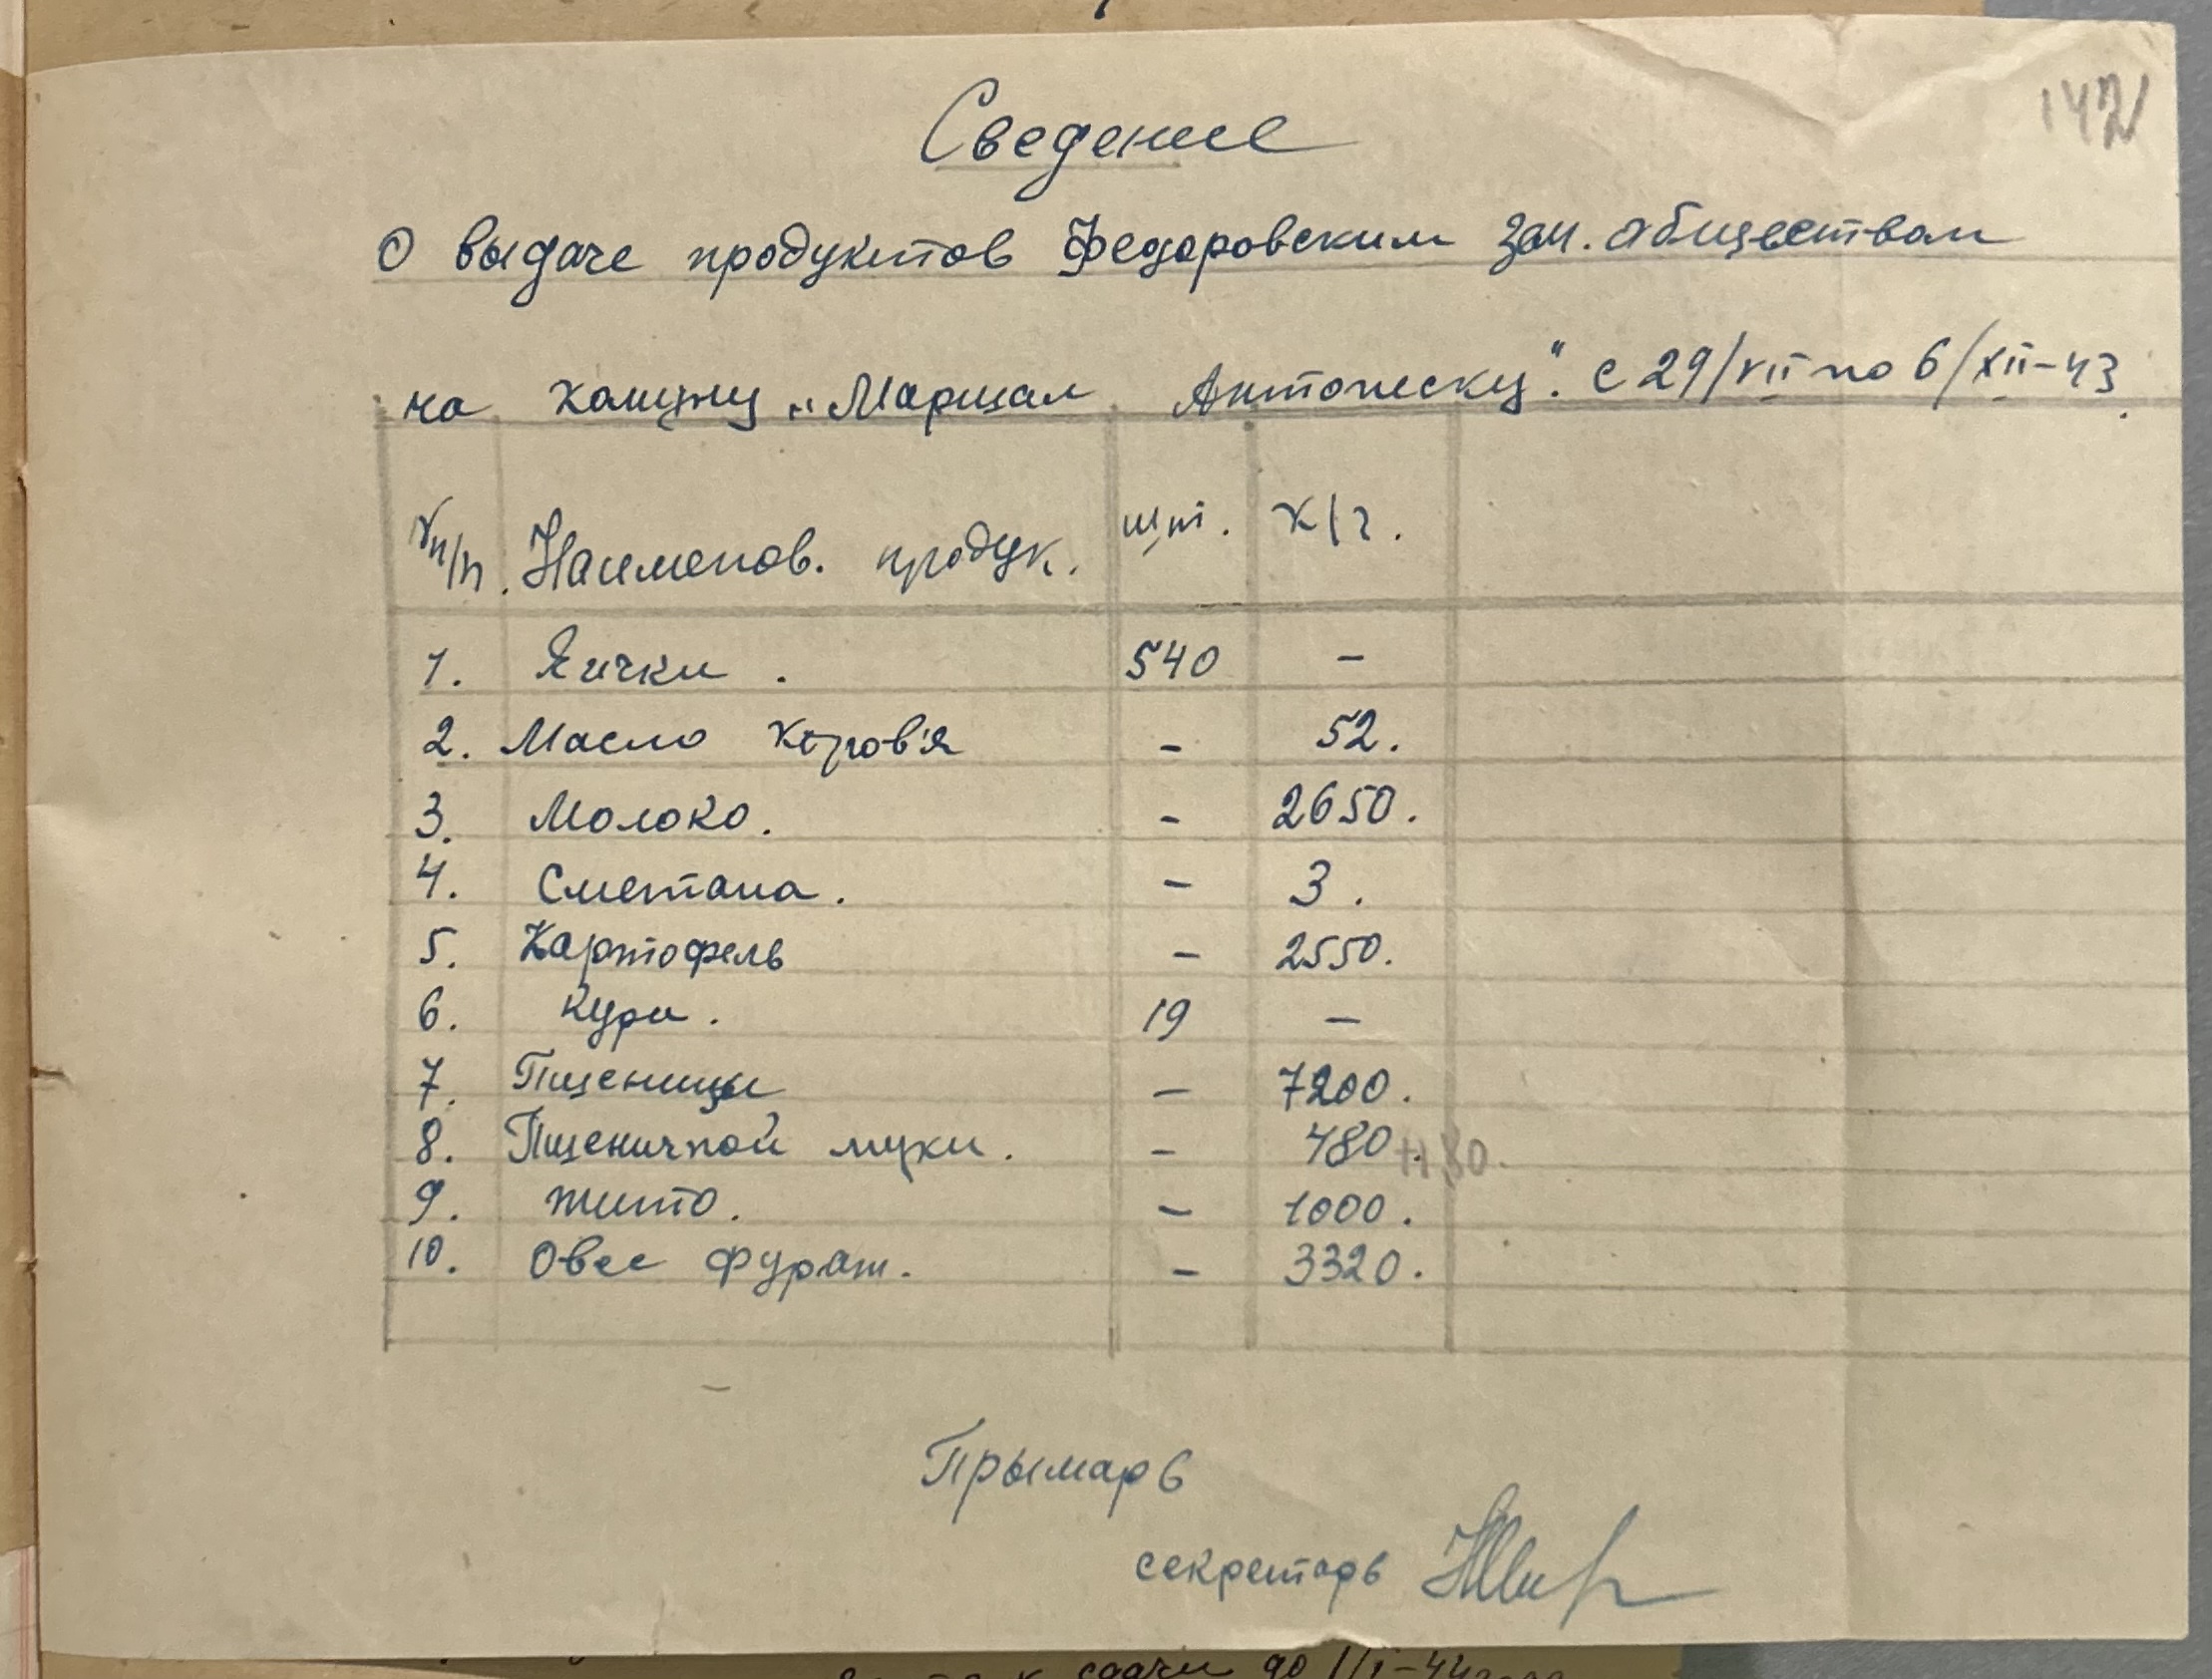 142
Сведение
О выдаче продуктов Федоровским зем. обществом
на коммуну „Маршал Антонеску". с 29/VII по 6/XII-43.
№ п/п. Наименов. продук. шт. к/г.
1. Яички. 540 -
2. Масло коров'я - 52.
3. Молоко. - 2650.
4. Сметана. - 3.
5. Картофель - 2550.
6. Кури. 19 -
7. Пшеницы - 7200.
8. Пшеничной муки. - 480.
9. Жито. - 1000.
10. Овес фураж. - 3320.
Прымарь
секретарь